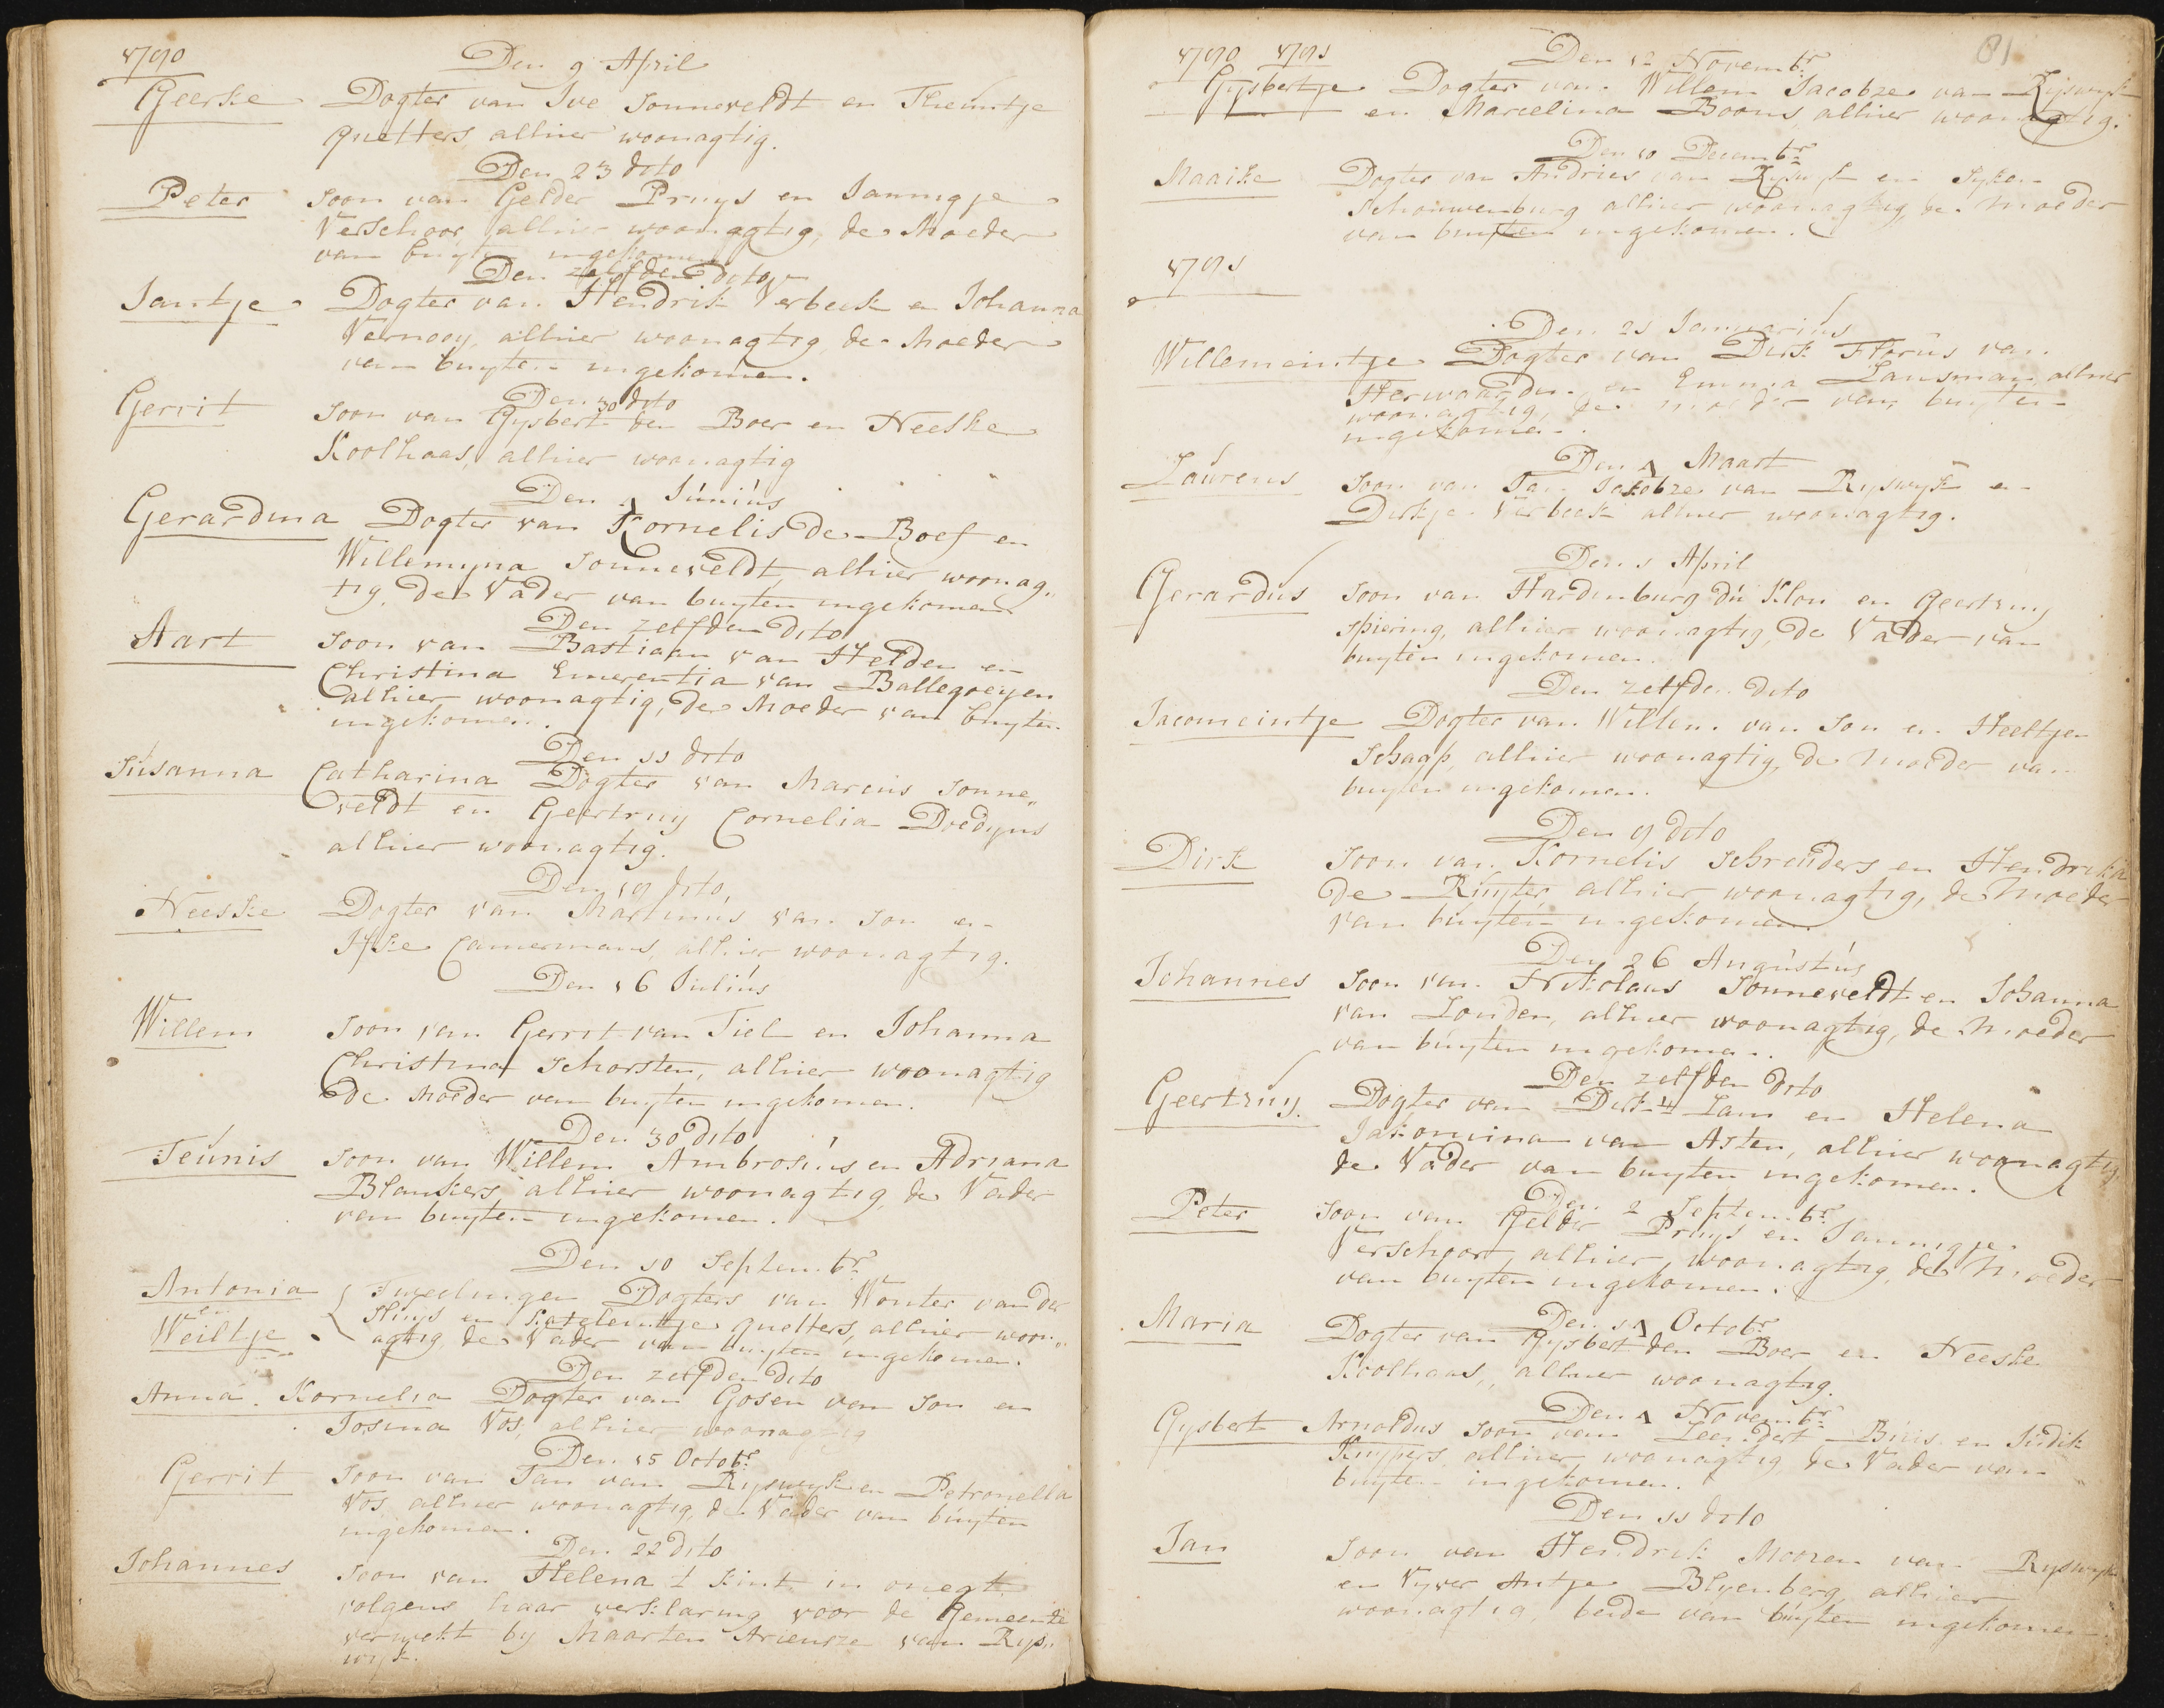 1790
Den 9 April
Geerke Dogter van Ive Sonneveldt en Theuntje
Quetters alhier woonagtig.
Den 23 dito
Peter Soon van Gelder Pruys en Jannigje
Verschoor, alhier woonagtig, de Moeder
van buyten ingekomen
Den zelfden dito
Jantje Dogter van Hendrik Verbeek en Johanna
Vernooy, alhier woonagtig, de Moeder
van buyten ingekomen.
Den 30 dito
Gerrit Soon van Gysbert den Boer en Neeske
Koolhaas, alhier woonagtig
Den Júniús
Gerardina Dogter van Kornelis de Boef en
Willemyna Sonneveldt, alhier woonag„
tig, de Vader van buyten ingekomen
Den zelfden dito
Aart Soon van Bastiaan van Helden en
Christina Emerentia van Ballegoeyen
alhier woonagtig, de Moeder van buyten
ingekomen.
Den 11 dito
Súsanna Catharina Dogter van Marcus Sonne„
veldt en Geertruy Cornelia Doedyns
alhier woonagtig.
Den 19 dito,
Neeske Dogter van Martinus van Son en
Ifke Camermans, alhier woonagtig.
Den 16 Juliús
Willem Soon van Gerrit van Tiel en Johanna
Christina Schorsten, alhier woonagtig
de Moeder van buyten ingekomen.
Den 30 dito
Teúnis Soon van Willem Ambrosiús en Adriana
Blankers alhier woonagtig, de Vader
van buyten ingekomen.
Den 10 Septembr.
Antonia Tweelingen Dogters van Wouter van der
en Huys en Katelentje Quetters, alhier woon„
Weiltje agtig de Vader van buyten ingekomen.
Den zelfden dito
Anna Kornelia Dogter van Gosen van Son en
Josina Vos, alhier woonagtig
Den 15 Octobr.
Gerrit Soon van Jan van Ryswyk en Petronella
Vos, alhier woonagtig, de Vader van buyten
ingekomen.
Den 22 dito
Johannes Soon van Helena 't Kint in onegt
volgens haar verklaring voor de Gemeente
verwekt by Maarten Ariensze van Rys„
wyk.
81
1790 1791
Den 12 Novembr.
Gysbertje Dogter van Willem Jacobze van Ryswyk
en Marcelina Booms, alhier woonagtig.
Den 10 Decembr.
Maaike Dogter van Andries van Ryswyk en Syken
Schouwenburg alhier woonagtig, de Moeder
van buyten ingekomen.
1791
Den 21 Januariús
Willemeintje Dogter van Dirk Florus van
Herwaarden en Emma Lansman, alhier
woonagtig, de moeder van buyten
ingekomen.
Den Maart
Laúrens Soon van Jan Jakobze van Ryswyk en
Dirkje Verbeek alhier woonagtig.
Den 1 April
Gerardus Soon van Hardenburg du Klou en Geertruy
Spiering, alhier woonagtig, de Vader van
buyten ingekomen.
Den zelfden dito
Jacomeintje Dogter van Willem van Son en Heeltjen
Schaap, alhier woonagtig, de Moeder van
buyten ingekomen.
Den 9 dito
Dirk Soon van Kornelis Schreuders en Hendrika
de Ruyter, alhier woonagtig, de Moeder
van buyten ingekomen
Den 26 Augústús
Johannes Soon van Nikolaus Sonneveldt en Johanna
van Londen, alhier woonagtig, de Moeder
van buyten ingekomen.
Den zelfden dito
Geertruy. Dogter van Dirk Lam en Helena
Jakomina van Asten, alhier woonagtig,
de Vader van buyten ingekomen.
Den 2 Septembr.
Peter Soon van Gelder Pruys en Jannigje
Verschoor, alhier, woonagtig, de Moeder
van buyten ingekomen.
Den Octobr.
Maria Dogter van Gysbert den Boer en Neeske
Koolhaas, alhier woonagtig.
Den Novembr.
Gysbert Arnoldus Soon van Leendert Búis en Júdik
Kuypers, alhier, woonagtig de Vader van
buyten ingekomen.
Den 11 dito
Jan Soon van Hendrik Moozen van Ryswyk
en Vyver Antje Blyenberg, alhier
woonagtig beide van buyten ingekomen.